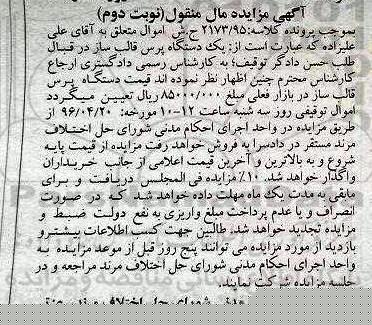 آگهی مزایده مال منقول(نوبت دوم)
بموجب پرونده کلاسه:۲۱۷۳/۹۵ ح.ش اموال متعلق به آقای علی
علیزاده که عبارت است از: یک دستگاه پرس قالب ساز در قبال
طلب حسن دادگر توقیف؛ به کارشناس رسمی دادگستری ارجاع
کارشناس محترم چنین اظهار نظر نموده اند قیمت دستگاه پرس
قالب ساز در بازار فعلی مبلغ ۸۵۰۰۰/۰۰۰ ریال تعیین میگردد
اموال توقیفی روز سه شنبه ساعت ۱۲-۱۰ مورخه: ۹۶/۰۴/۲۰ از
طریق مزایده در واحد اجرای احکام مدنی شورای حل اختلاف
مرند مستقر در دادسرا به فروش خواهد رفت مزایده از قیمت پایه
شروع و به بالاترین و آخرین قیمت اعلامی از جانب خریداران
واگذار خواهد شد. ۱۰٪ مزایده فی المجلس دریافت و برای
مابقی به مدت یک ماه مهلت داده خواهد شد که در صورت
انصراف و یا عدم پرداخت مبلغ واریزی به نفع دولت ضبط و
مزایده تجدید خواهد شد. طالبین جهت کسب اطلاعات بیشتر و
بازدید از مورد مزایده می توانند پنج روز قبل از موعد مزایده به
واحد اجرای احکام مدنی شورای حل اختلاف مرند مراجعه و در
جلسه مزایده شرکت نمایند.